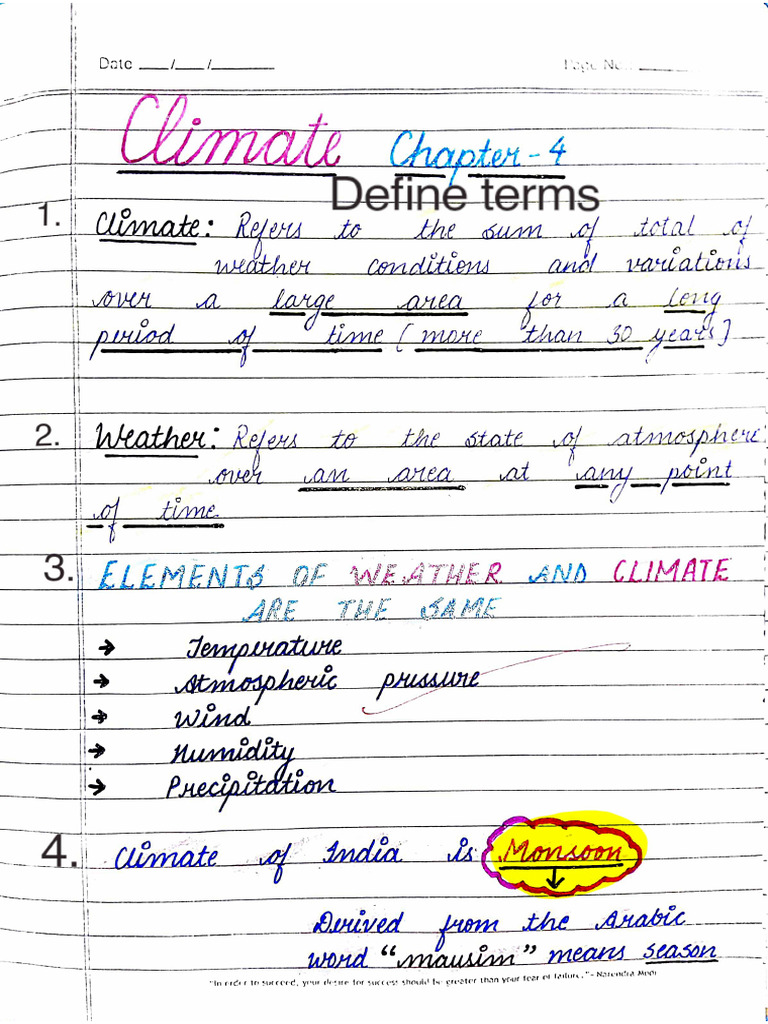 Date ___/___/______ Page No. ______
Climate Chapter-4
Define terms
1. Climate: Refers to the sum of total of
weather conditions and variations
over a large area for a long
period of time [more than 30 years]
2. Weather: Refers to the state of atmosphere
over an area at any point
of time
3. ELEMENTS OF WEATHER AND CLIMATE
ARE THE SAME
→ Temperature
→ Atmospheric pressure
→ Wind
→ Humidity
→ Precipitation
4. Climate of India is Monsoon
↓
Derived from the Arabic
word "mausim" means season
"In order to succeed, your desire for success should be greater than your fear of failure." - Narendra Modi